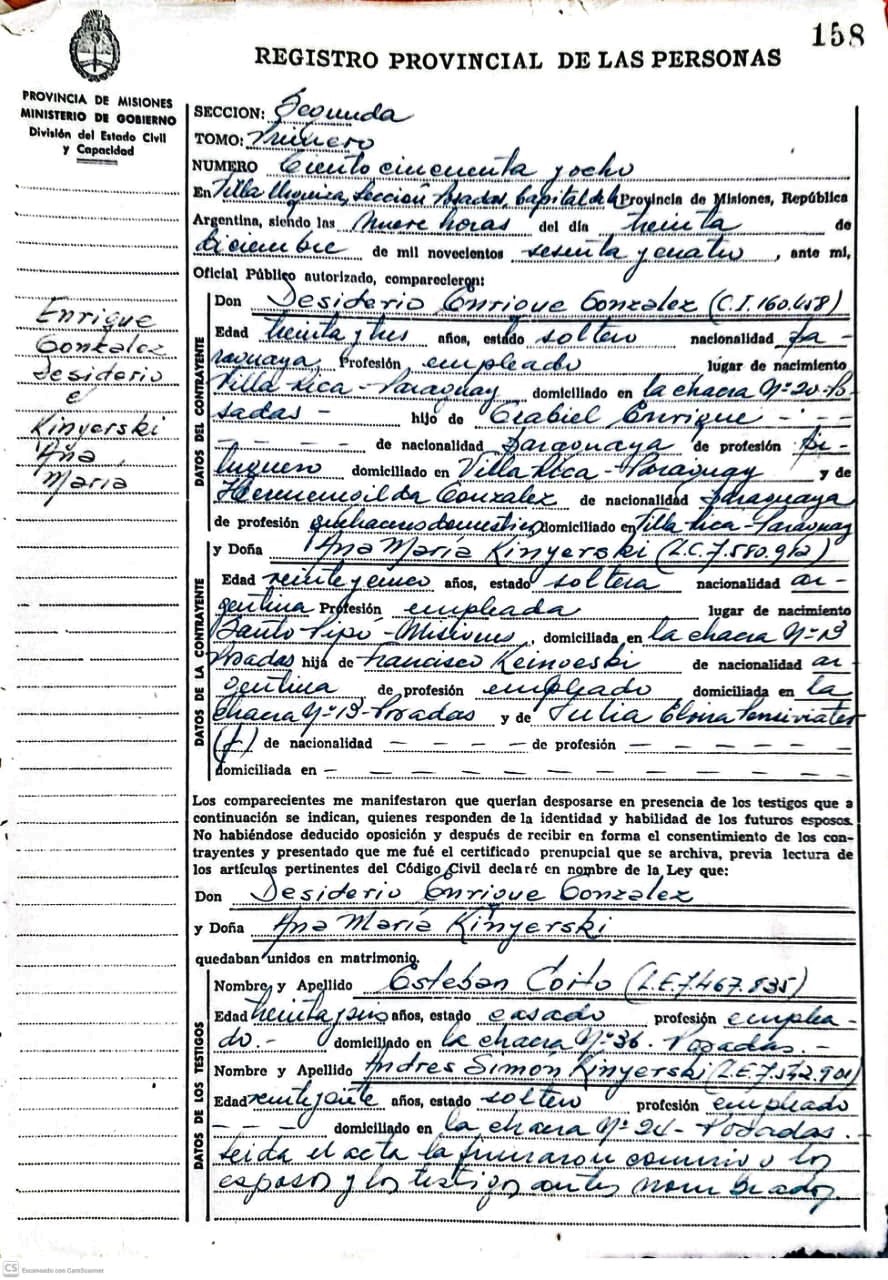 158
REGISTRO PROVINCIAL DE LAS PERSONAS
PROVINCIA DE MISIONES
MINISTERIO DE GOBIERNO
División del Estado Civil
y Capacidad
SECCION: Segunda
TOMO: Primero
NUMERO Ciento cincuenta y ocho
En Villa Urquiza, Sección Posadas, Capital de la Provincia de Misiones, República
Argentina, siendo las nueve horas del día treinta de
diciembre de mil novecientos sesenta y cuatro, ante mi,
Oficial Público autorizado, comparecieron:
Enrique
Gonzalez
Desiderio
e
Kinyerski
Ana
María
DATOS DEL CONTRAYENTE
Don Desiderio Enrique Gonzalez (C.I. 160.458)
Edad treinta y tres años, estado soltero nacionalidad pa-
raguaya Profesión empleado lugar de nacimiento
Villa Rica - Paraguay domiciliado en la chacra Nº 20-Po-
sadas - hijo de Grabiel Enrique - - -
- - - - - de nacionalidad paraguaya de profesión pe-
luquero domiciliado en Villa Rica - Paraguay y de
Hermenegilda Gonzalez de nacionalidad paraguaya
de profesión quehaceres domesticos domiciliado en Villa Rica - Paraguay
DATOS DE LA CONTRAYENTE
y Doña Ana María Kinyerski (L.C. 7.580.912)
Edad veinte y cinco años, estado soltera nacionalidad ar-
gentina Profesión empleada lugar de nacimiento
Santo Pipó - Misiones, domiciliada en la chacra Nº 19
Posadas hija de Francisco de nacionalidad ar-
gentina de profesión empleado domiciliada en la
chacra Nº 19 - Posadas y de Julia Elvira
(f) de nacionalidad - - - - - de profesión - - - - - -
domiciliada en - - - - - - - - - - -
Los comparecientes me manifestaron que querían desposarse en presencia de los testigos que a
continuación se indican, quienes responden de la identidad y habilidad de los futuros esposos.
No habiéndose deducido oposición y después de recibir en forma el consentimiento de los con-
trayentes y presentado que me fué el certificado prenupcial que se archiva, previa lectura de
los artículos pertinentes del Código Civil declaré en nombre de la Ley que:
Don Desiderio Enrique Gonzalez
y Doña Ana María Kinyerski
quedaban unidos en matrimonio.
DATOS DE LOS TESTIGOS
Nombre y Apellido Esteban (L.E. 7.467.835)
Edad treinta y años, estado casado profesión emplea-
do.- domiciliado en la chacra Nº 36. Posadas.-
Nombre y Apellido Andres Simón Kinyerski (L.E. 7.542.901)
Edad veinte y siete años, estado soltero profesión empleado
- - - domiciliado en la chacra Nº 24 - Posadas.-
Leida el acta la firmaron conmigo los
esposos y los testigos antes nombrados.
CS Escaneado con CamScanner